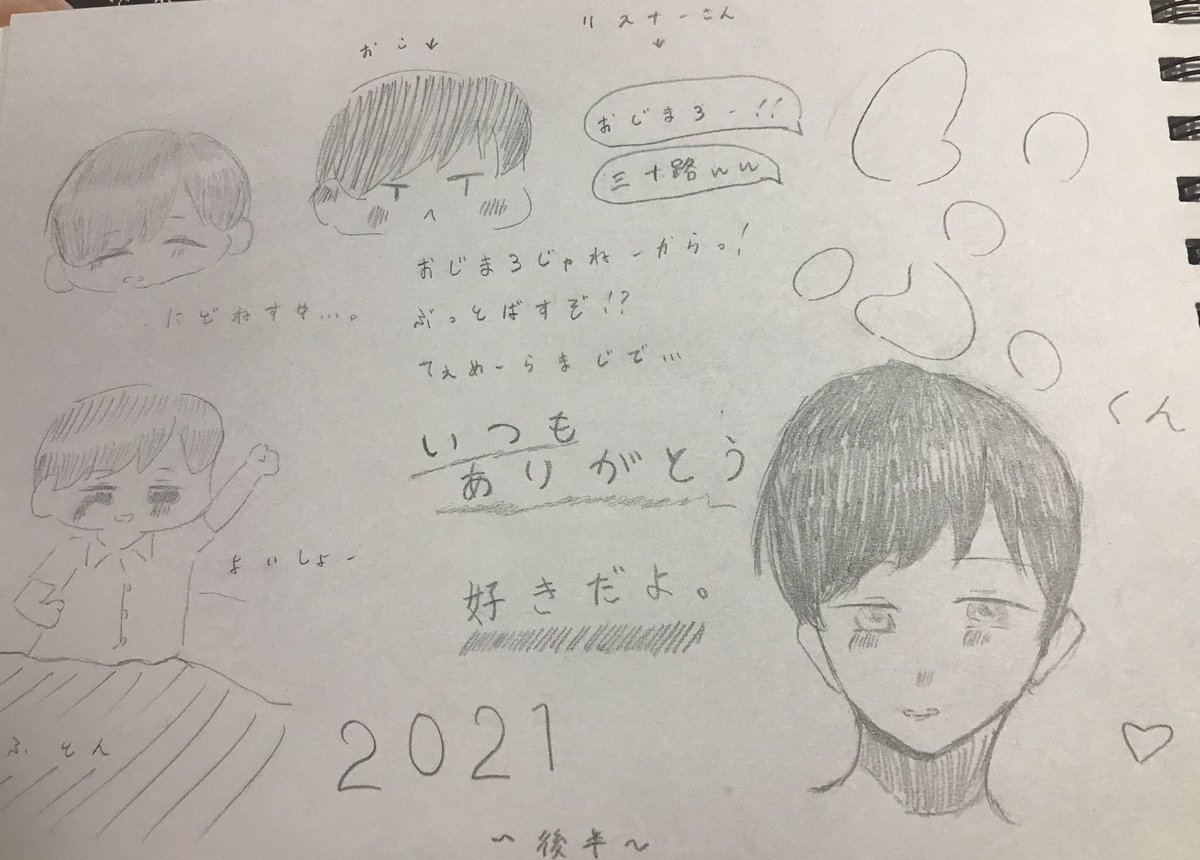 リスナーさん
↓
おこ↓
おじまろー!!
三十路ww
おじまろじゃねーからっ!
ぶっとばすぞ!?
てぇめーらまじで...
にどねす中...。
いつも
ありがとう
くん
よいしょー
好きだよ。
ふとん
2021
〜後半〜